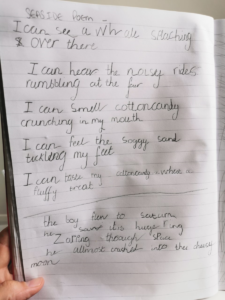 SEASIDE POEM
I can see a whale splaching
& over there
I can hear the noisy rides
rumbling at the fair
I can smell cottoncandy
crunching in my mouth
I can feel the soggy sand
tickling my feet
I can taste my
fluffy treat
the boy flew to saturn
he was huge
Zooming through space
he allmost crashed into the cheese
moon